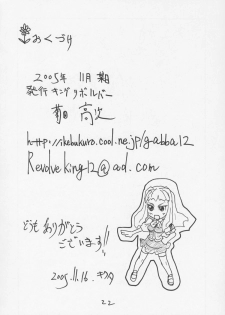 おくづけ
2005年 11月 某日
発行 キングリボルバー
菊田 高次
http://ikebukuro.cool.ne.jp/gabba12
Revolveking12@aol.com
どうもありがとう
ございます!!
2005.11.16.
22